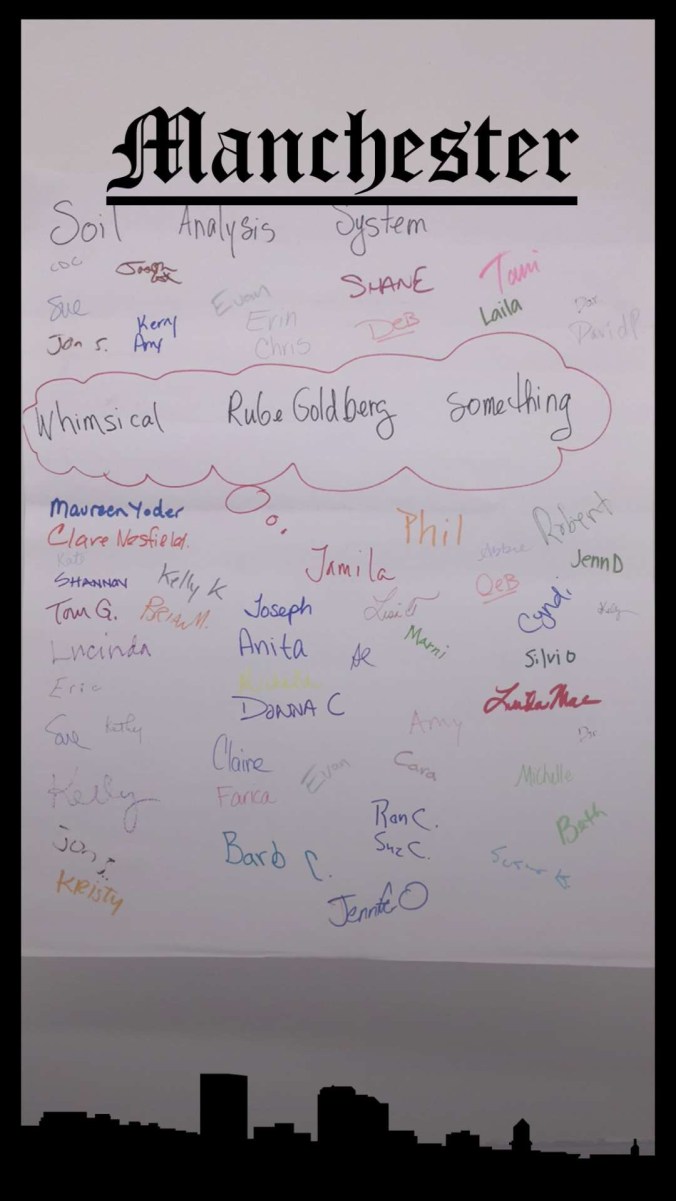 Manchester
Soil Analysis System
CDC Joseph SHANE Tami
Sue Evan Laila
Kerry Erin DeB DavidP
Jon S. Amy Chris
Whimsical Rube Goldberg Something
Maureen Yoder Phil Robert
Clare Nesfield.
Kate Jamila JennD
SHANNON Kelly K DeB Cyndi
Tom G. Brian M. Joseph
Lucinda Anita Marni Silvio
Eric
DONNA C LindaMae
Sue Kathy Amy
Claire Evan Cara Michelle
Kelly Fanca
Ron C. Beth
Jon S. Barb C. Suz C.
KRISTY
Jennifer O